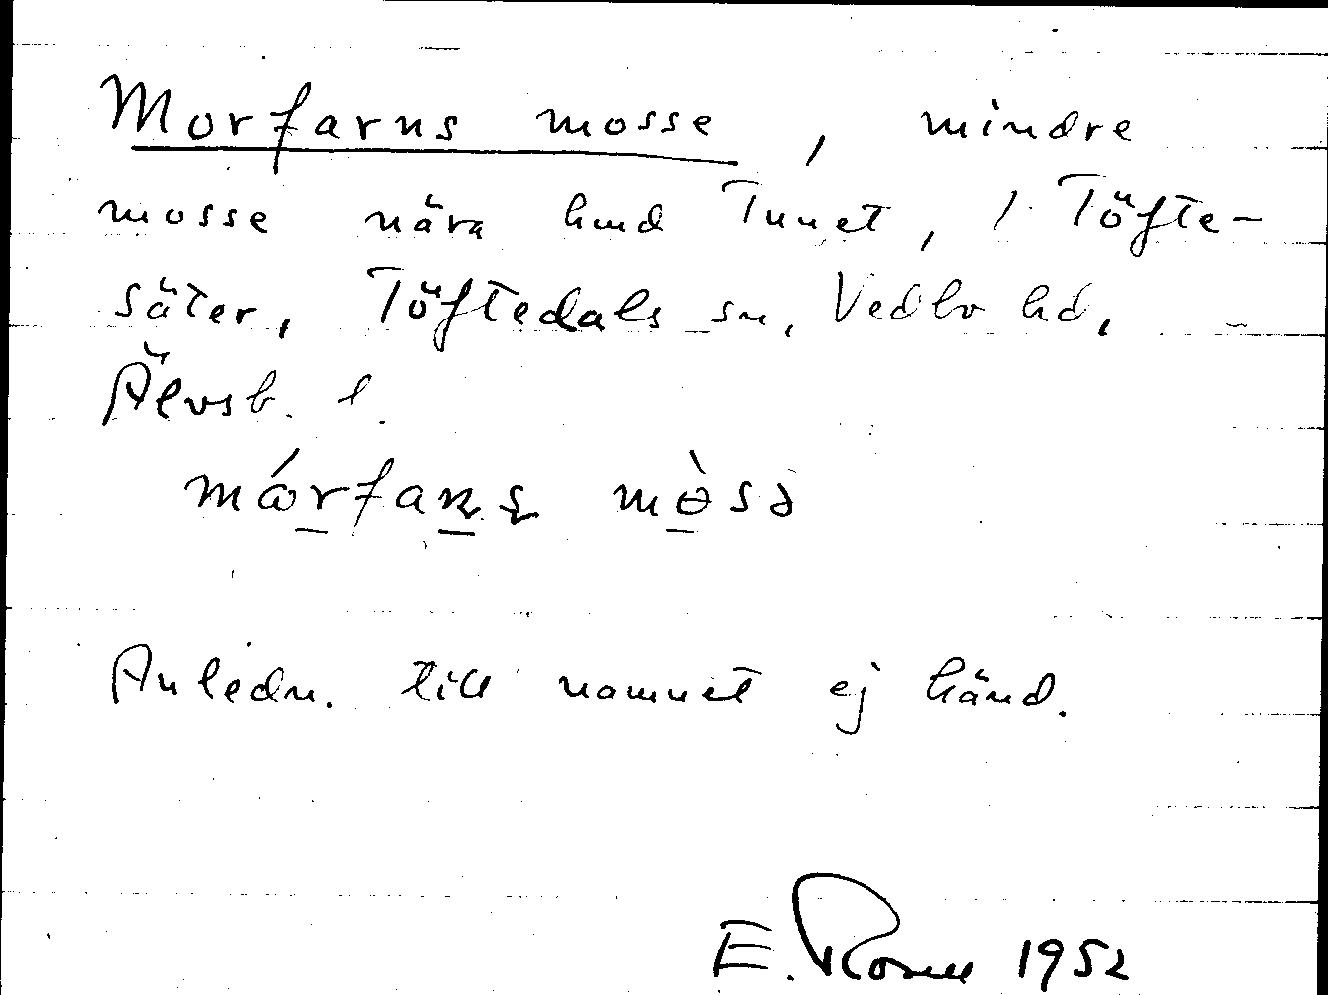 Morfarns mosse, mindre
mosse nära hmd Tunet, 1 Töfte-
säter, Töftedals sn, Vedbo hd,
Älvsb. l.
mosse
Anledn. till namnet ej känd.
E. 1952